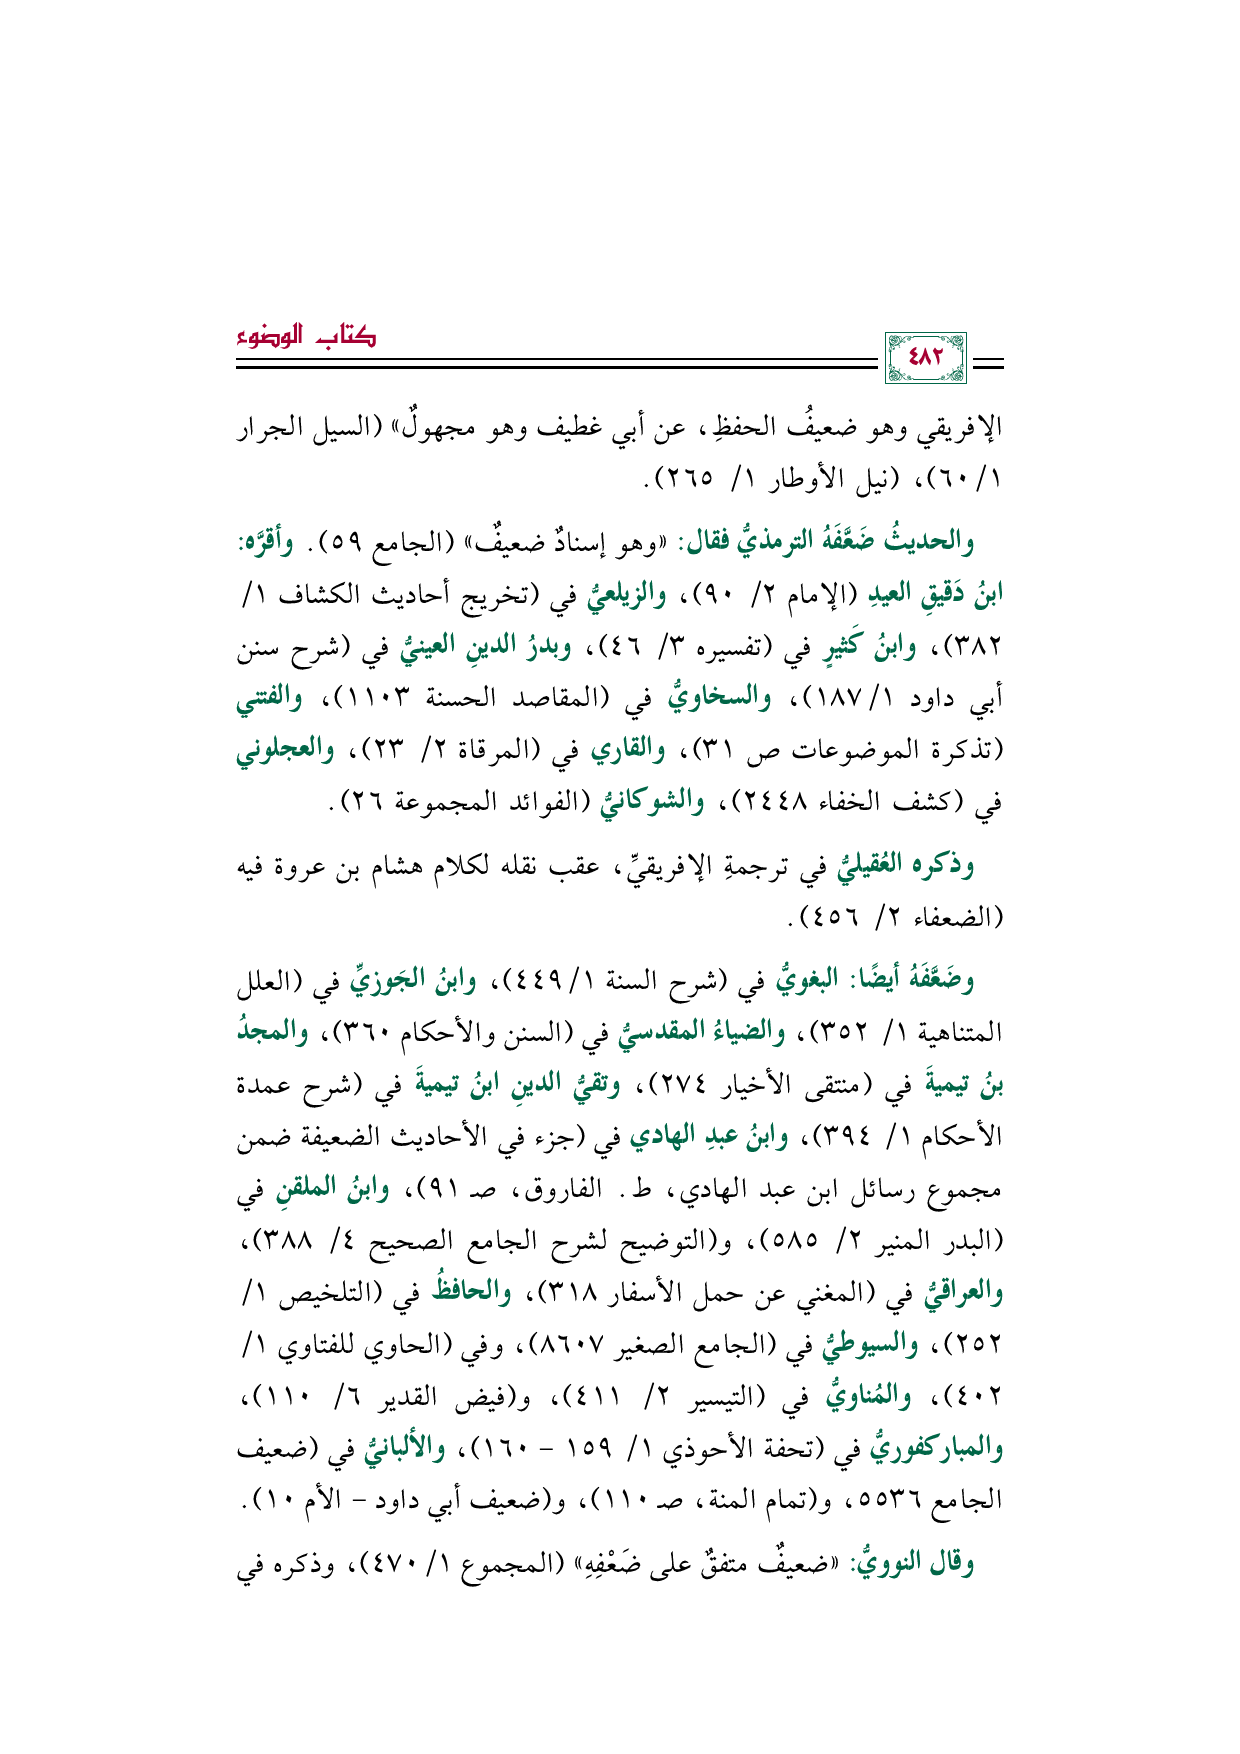 كتاب الوضوء
٤٨٢
الإفريقي وهو ضعيفُ الحفظِ، عن أبي غطيف وهو مجهولٌ» (السيل الجرار
١/ ٦٠)، (نيل الأوطار ١/ ٢٦٥).
والحديثُ ضَعَّفَهُ الترمذيُّ فقال: «وهو إسنادٌ ضعيفٌ» (الجامع ٥٩). وأقرَّه:
ابنُ دَقيقِ العيدِ (الإمام ٢/ ٩٠)، والزيلعيُّ في (تخريج أحاديث الكشاف ١/
٣٨٢)، وابنُ كَثيرٍ في (تفسيره ٣/ ٤٦)، وبدرُ الدينِ العينيُّ في (شرح سنن
أبي داود ١/ ١٨٧)، والسخاويُّ في (المقاصد الحسنة ١١٠٣)، والفتني
(تذكرة الموضوعات ص ٣١)، والقاري في (المرقاة ٢/ ٢٣)، والعجلوني
في (كشف الخفاء ٢٤٤٨)، والشوكانيُّ (الفوائد المجموعة ٢٦).
وذكره العُقيليُّ في ترجمةِ الإفريقيِّ، عقب نقله لكلام هشام بن عروة فيه
(الضعفاء ٢/ ٤٥٦).
وضَعَّفَهُ أيضًا: البغويُّ في (شرح السنة ١/ ٤٤٩)، وابنُ الجَوزيِّ في (العلل
المتناهية ١/ ٣٥٢)، والضياءُ المقدسيُّ في (السنن والأحكام ٣٦٠)، والمجدُ
بنُ تيميةَ في (منتقى الأخيار ٢٧٤)، وتقيُّ الدينِ ابنُ تيميةَ في (شرح عمدة
الأحكام ١/ ٣٩٤)، وابنُ عبدِ الهادي في (جزء في الأحاديث الضعيفة ضمن
مجموع رسائل ابن عبد الهادي، ط. الفاروق، صـ ٩١)، وابنُ الملقنِ في
(البدر المنير ٢/ ٥٨٥)، و(التوضيح لشرح الجامع الصحيح ٤/ ٣٨٨)،
والعراقيُّ في (المغني عن حمل الأسفار ٣١٨)، والحافظُ في (التلخيص ١/
٢٥٢)، والسيوطيُّ في (الجامع الصغير ٨٦٠٧)، وفي (الحاوي للفتاوي ١/
٤٠٢)، والمُناويُّ في (التيسير ٢/ ٤١١)، و(فيض القدير ٦/ ١١٠)،
والمباركفوريُّ في (تحفة الأحوذي ١/ ١٥٩ – ١٦٠)، والألبانيُّ في (ضعيف
الجامع ٥٥٣٦، و(تمام المنة، صـ ١١٠)، و(ضعيف أبي داود – الأم ١٠).
وقال النوويُّ: «ضعيفٌ متفقٌ على ضَعْفِهِ» (المجموع ١/ ٤٧٠)، وذكره في